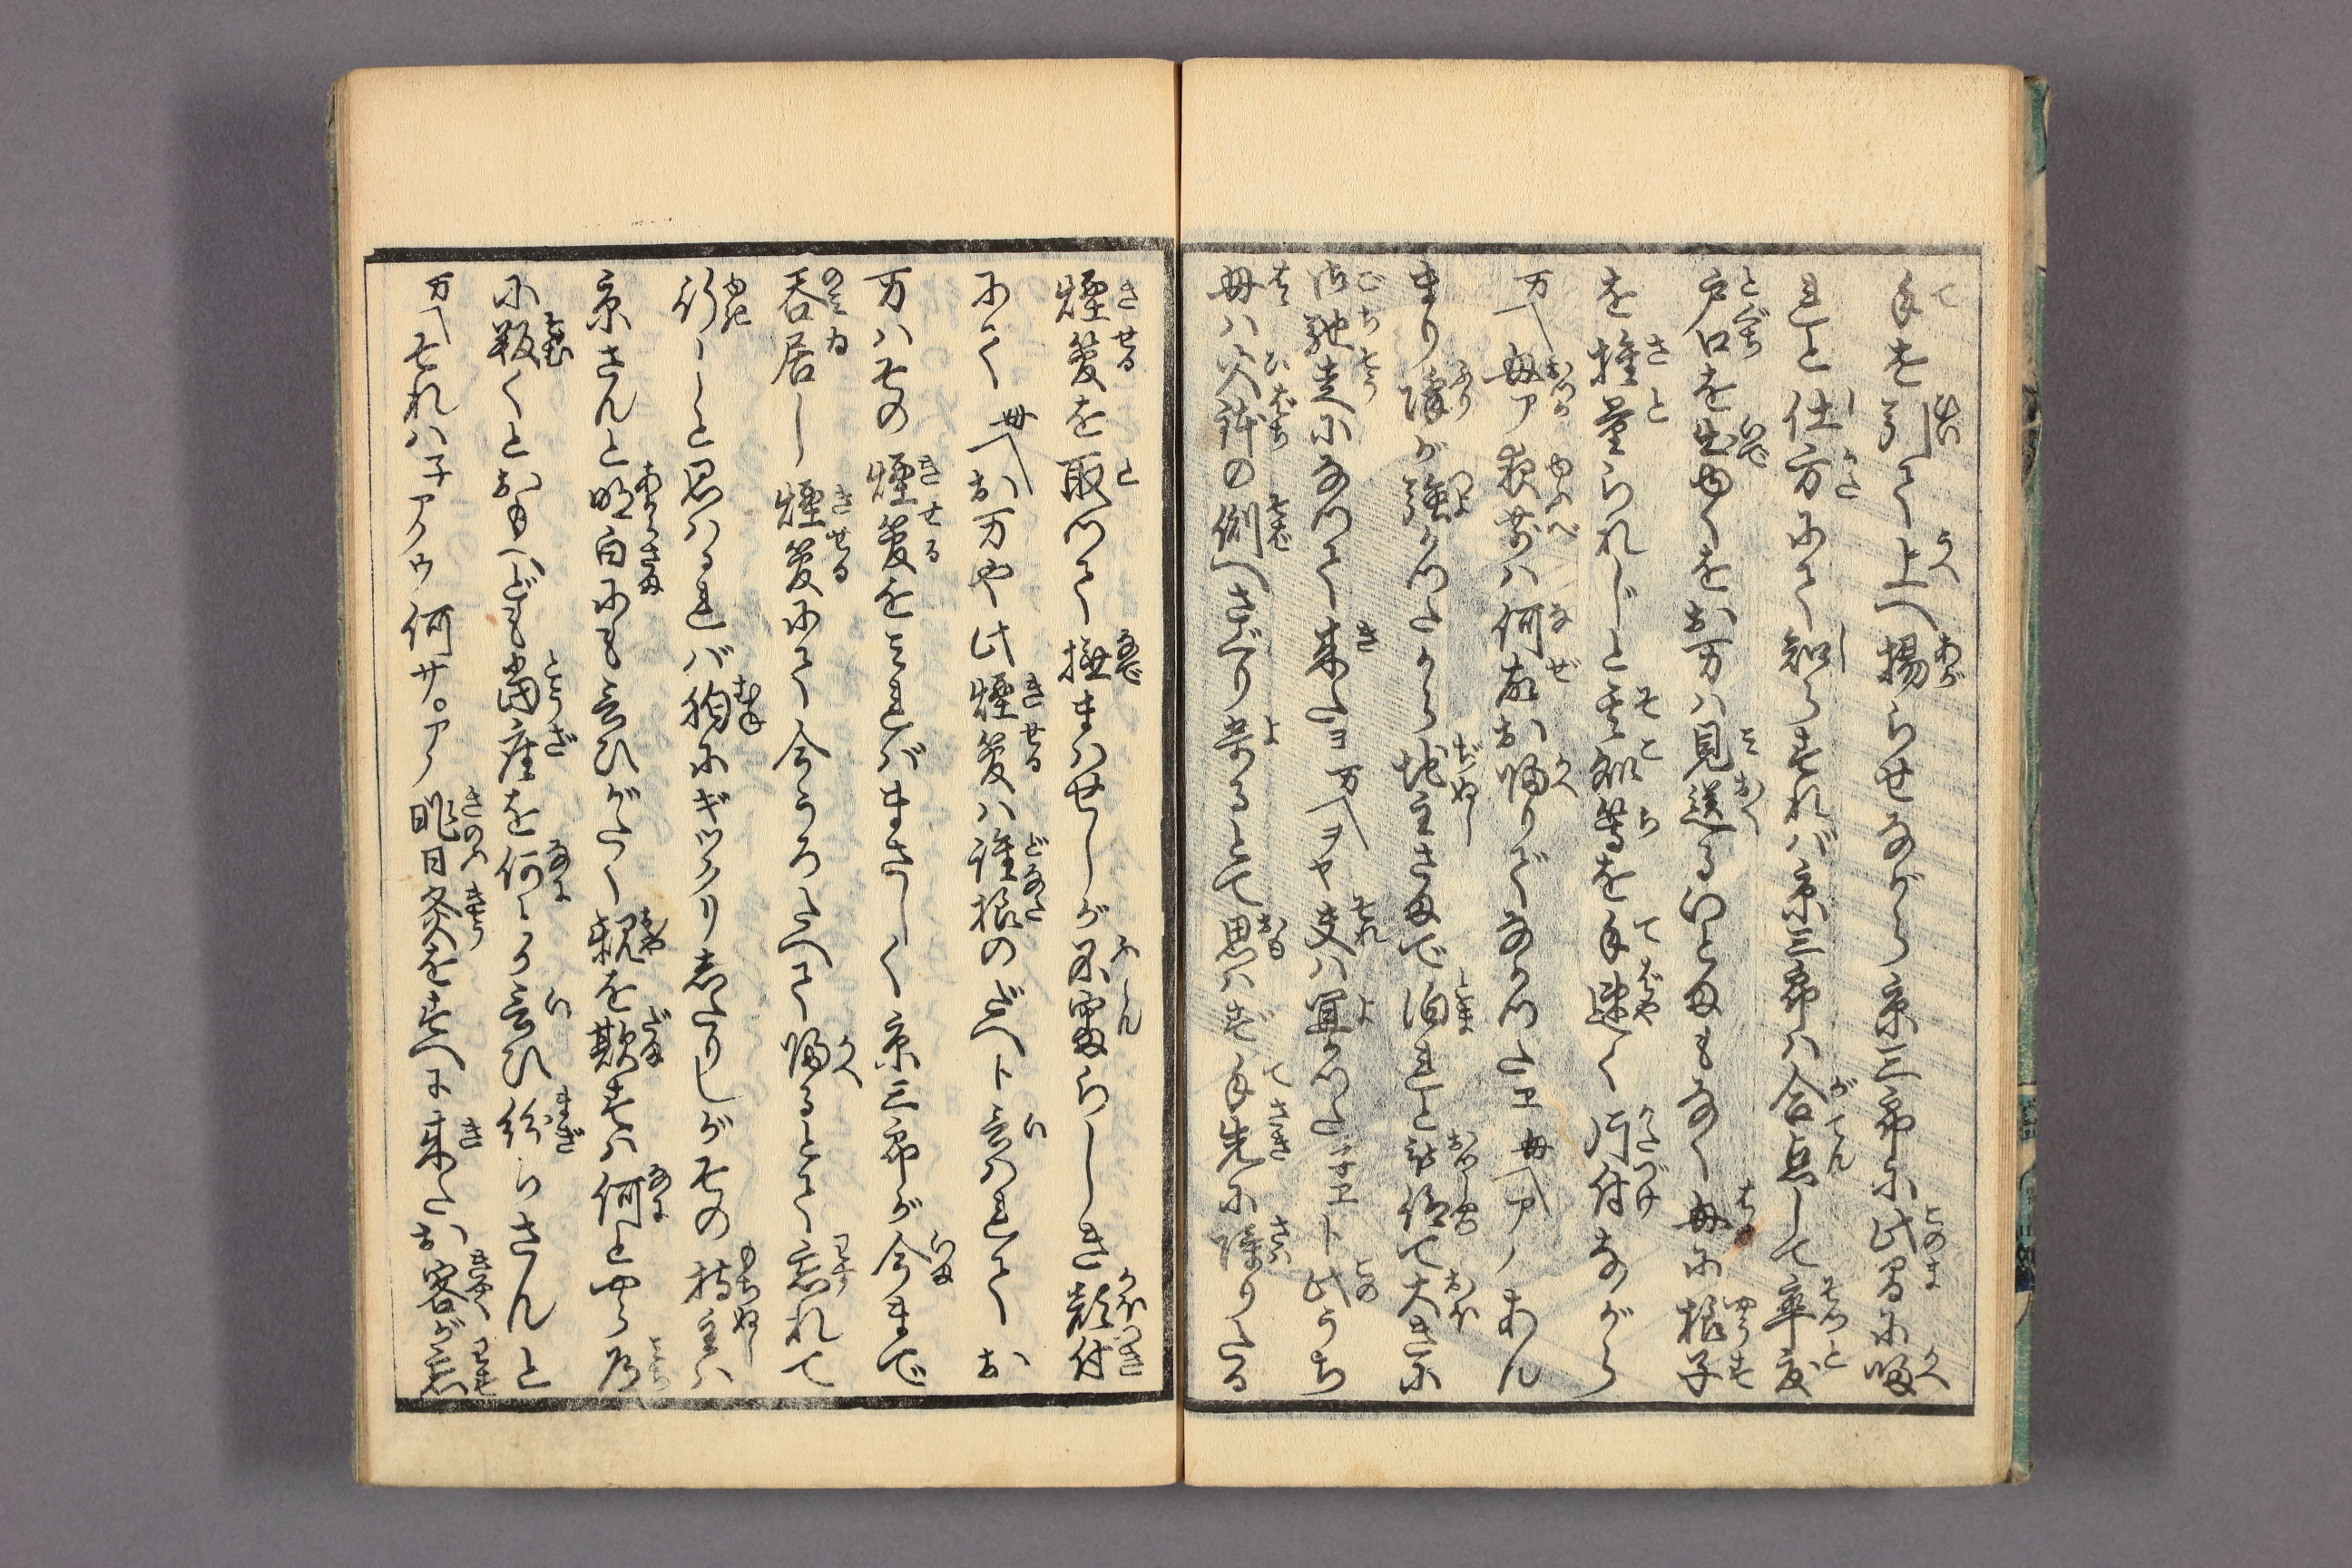 手を引て上へ揚らせながら京三郎に此間に帰
れと仕方にて知らすれば京三郎ハ合点して卒度
戸口を出ゆくをお万ハ見送るいとまもなく母に様子
を推量られじと其処等を手速く片付ながら
万〽母ア夜前ハ何故お帰りでなかつたヱ母〽アノあん
まり降が強かつたから地主さまで泊れと被仰て大きに
御馳走になつて来たヨ万〽ヲヤ夫ハ宜かつたネヱト此うち
母ハ火鉢の側へさぐり寄るとて思ハず手先に障りたる
煙管を取つて撫まハせしが不審らしき顔付
にて母〽お万や此煙管ハ誰様のだへト言ハれてお
万ハその煙管を見ればまさしく京三郎が今まで
呑居し煙管にて今うろたへて帰るとて忘れて
行しと思ハるれバ胸にギツクリあたりしがその持主ハ
京さんと明白にも言ひがたく親を欺すハ何とやら道
に報くとおもへども当座を何とか言ひ紛らさんと
万〽それハ子アノウ何サ。アノ昨日灸をすへに来たお客が忘